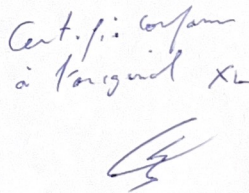 Certifié conforme
à l'original XL